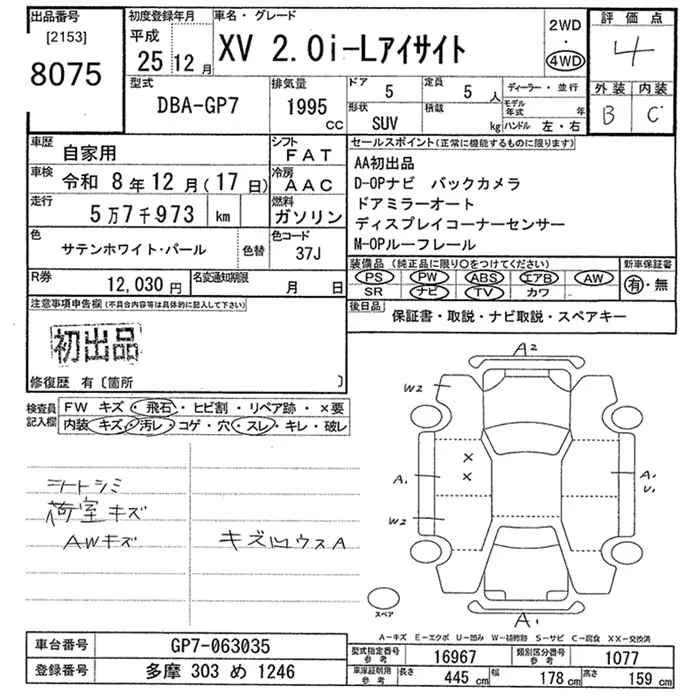 出品番号
[2153]
8075
初度登録年月
平成
25 12 月
車名・グレード
XV 2.0i-Lアイサイト
2WD
・
4WD
評価点
4
外装 内装
B C
型式
DBA-GP7
排気量
1995
CC
ドア
5
定員
5 人
形状
SUV
積載
kg
ディーラー・並行
モデル年式 年
ハンドル 左・右
車歴
自家用
車検
令和 8年 12月(17日)
走行
5万7千973 km
色
サテンホワイト・パール
色替
シフト
FAT
冷房
AAC
燃料
ガソリン
色コード
37J
R券
12,030 円
名変通知期限
月 日
セールスポイント(正常に機能するものに限ります)
AA初出品
D-OPナビ バックカメラ
ドアミラーオート
ディスプレイコーナーセンサー
M-OPルーフレール
装備品(純正品に限り○をつけてください)
PS PW ABS エアB AW
SR ナビ TV カワ
新車保証書
有・無
後日品
保証書・取説・ナビ取説・スペアキー
注意事項申告欄(不具合内容等は具体的に記入して下さい)
初出品
修復歴 有〔箇所 〕
検査員記入欄
FW キズ・飛石・ヒビ割・リペア跡・×要
内装 キズ・汚レ・コゲ・穴・スレ・キレ・破レ
シートシミ
荷室キズ
AWキズ
キズ凹ウスA
A2
W2
A1
W2
×
×
A1
U1
A1
スペア
A-キズ E-エクボ U-凹み W-補修跡 S-サビ C-腐食 XX-交換済
車台番号
GP7-063035
登録番号
多摩 303 め 1246
型式指定番号
参考
16967
類別区分番号
参考
1077
車庫証明用
参考
長さ 445 cm
幅 178 cm
高さ 159 cm